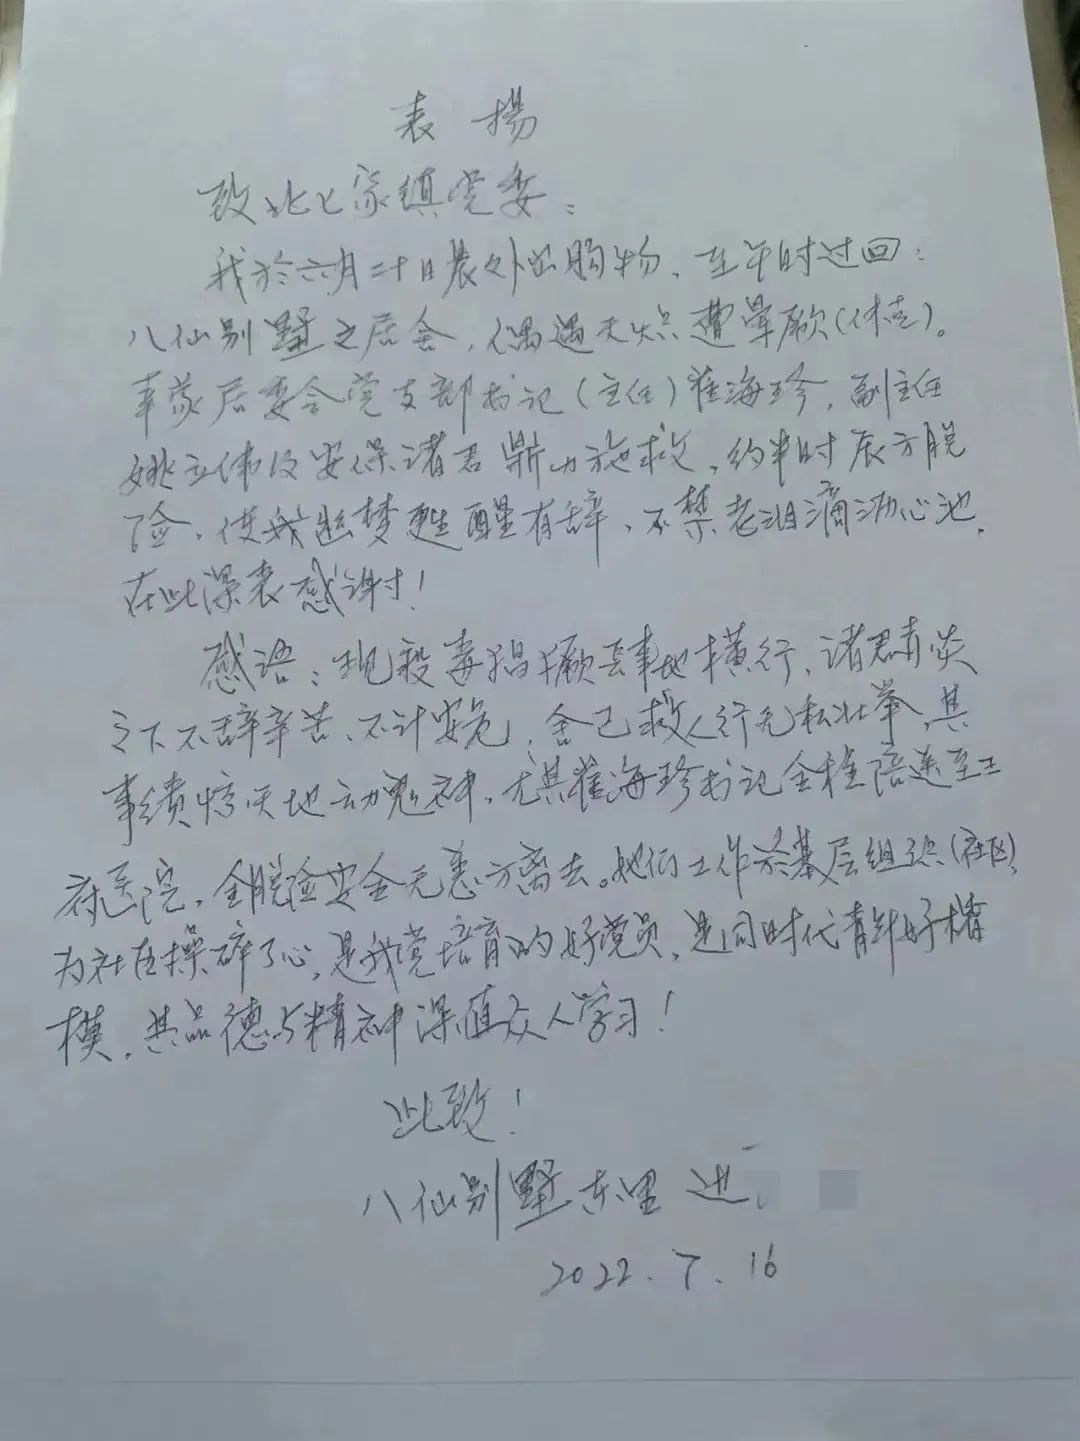 表揚
致北七家镇党委：
我於六月二十日晨外出购物、至午时过回：
八仙别墅之居舍，偶遇天炎遭晕厥(休克)。
幸蒙居委会党支部书记(主任)崔海珍，副主任
姚立伟及安保诸君鼎力施救，约半时辰方脱
险，使我幽梦甦醒有辞、不禁老泪滴沥心池，
在此深表感谢！
感语：现殺毒猖獗 横行，诸君 炎
令下不辞辛苦、不计安危，舍己救人行无私壮举，其
事绩惊天地动鬼神，尤其崔海珍书记全程陪送至王
府医院，全脱险安全无恙方离去。她们工作於基层组织(社区)，
为社区操碎了心，是我党培育的好党员，是同时代青年好楷
模，其品德与精神深值众人学习！
此致！
八仙别墅东里
2022.7.16